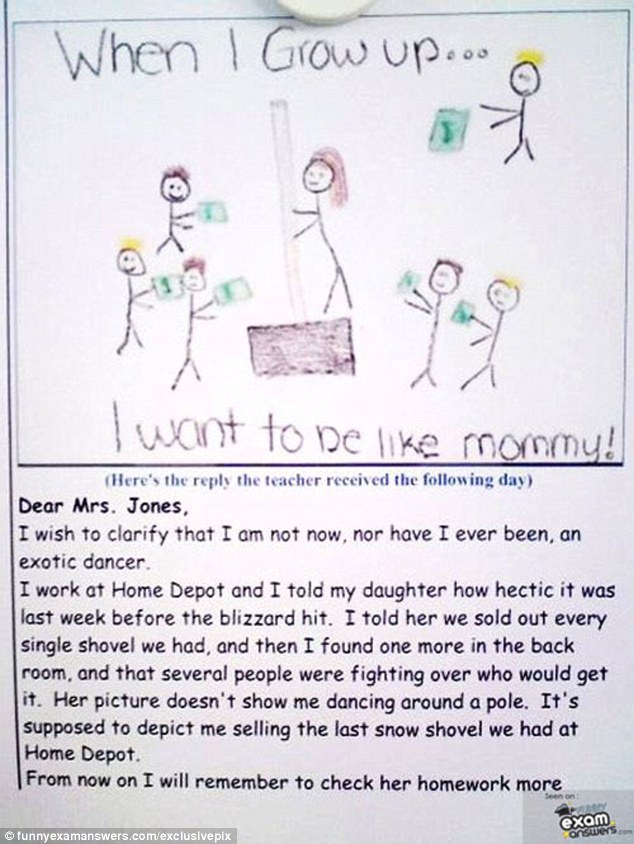 When I Grow up...
I want to be like mommy!
(Here's the reply the teacher received the following day)
Dear Mrs. Jones,
I wish to clarify that I am not now, nor have I ever been, an
exotic dancer.
I work at Home Depot and I told my daughter how hectic it was
last week before the blizzard hit. I told her we sold out every
single shovel we had, and then I found one more in the back
room, and that several people were fighting over who would get
it. Her picture doesn't show me dancing around a pole. It's
supposed to depict me selling the last snow shovel we had at
Home Depot.
From now on I will remember to check her homework more
Seen on:
FUNNY
exam
answers.com
© funnyexamanswers.com/exclusivepix